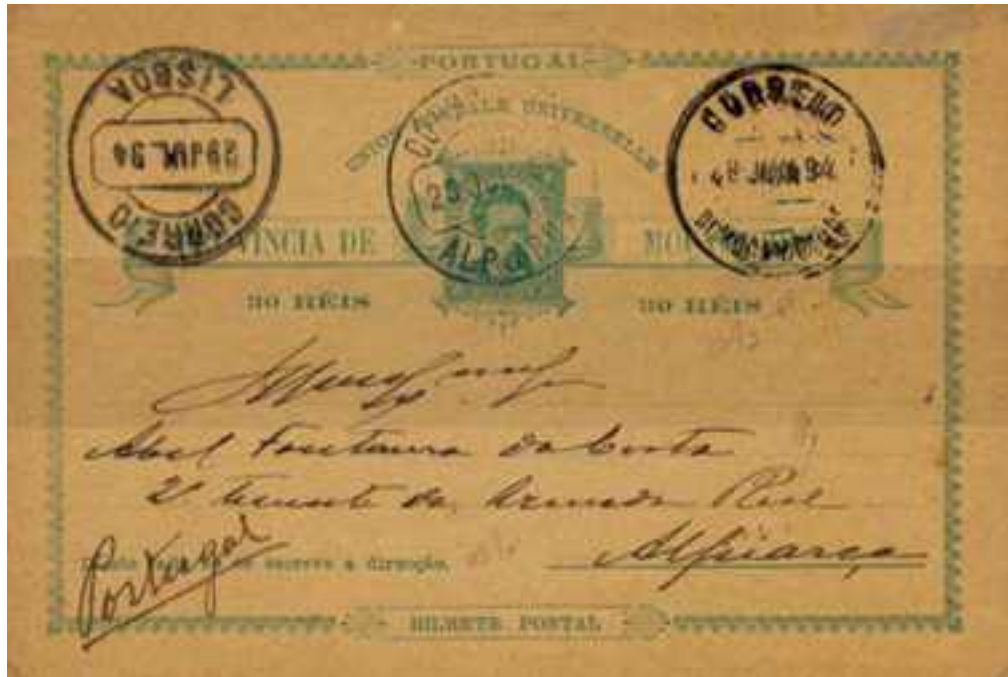 PORTUGAL
UNION POSTALE UNIVERSELLE
LISBOA
29 JUL 94
CORREIO
CORREIO
94
ALPIARÇA
PROVINCIA DE MO
30 RÉIS 30 RÉIS
Abel Fontoura da Costa
2º tenente da Armada Real
Alpiarça
Portugal
se escreve a direcção.
BILHETE POSTAL